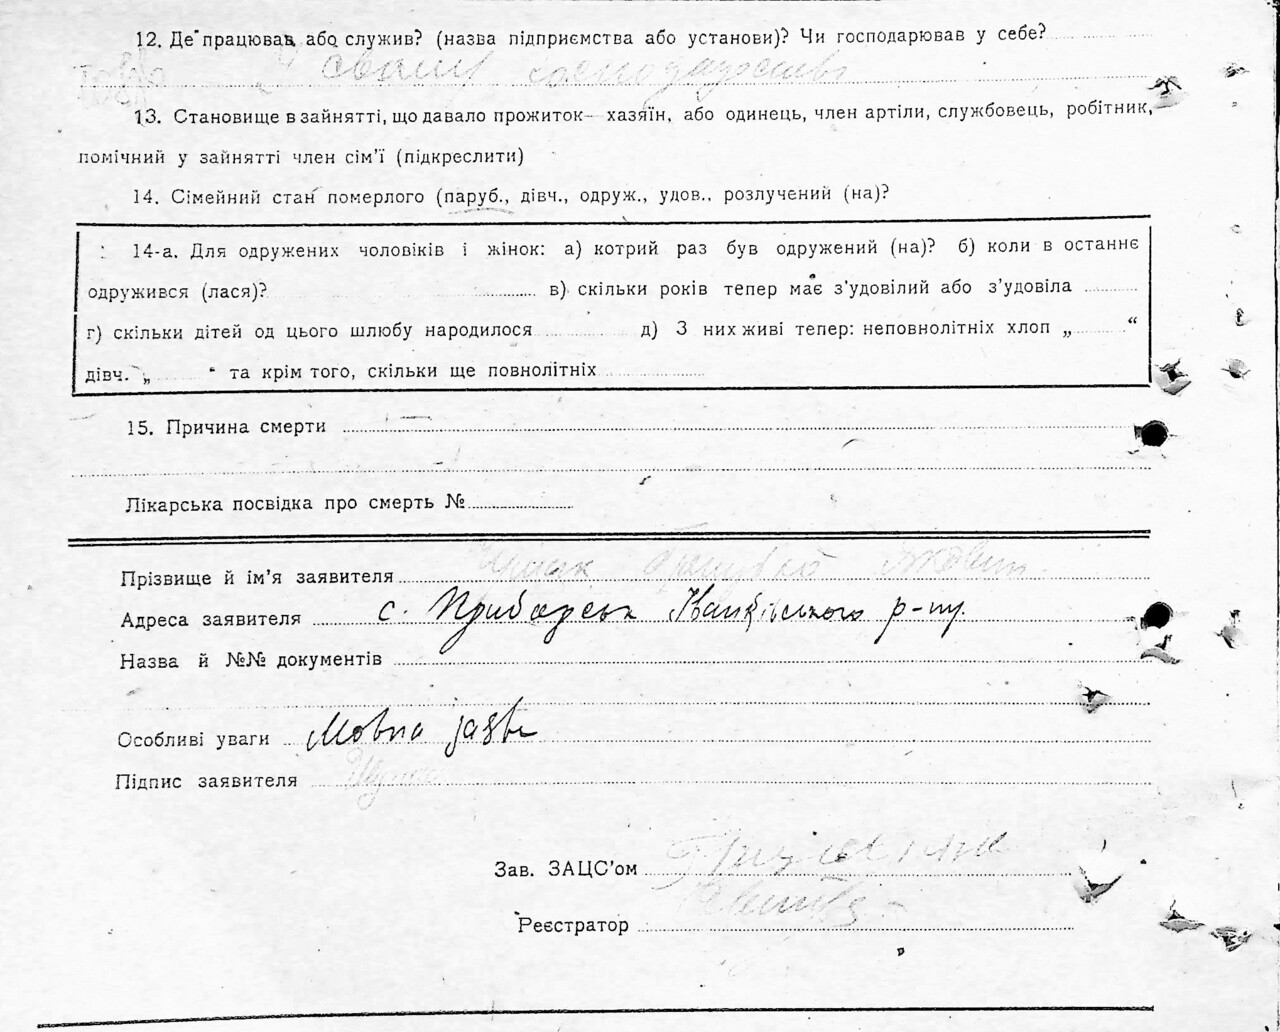 12. Де працював або служив? (назва підприємства або установи)? Чи господарював у себе?
У своему
13. Становище в зайнятті, що давало прожиток– хазяїн, або одинець, член артіли, службовець, робітник,
помічний у зайнятті член сім’ї (підкреслити)
14. Сімейний стан померлого (паруб., дівч., одруж., удов., розлучений (на)?
14-а. Для одружених чоловіків і жінок: а) котрий раз був одружений (на)? б) коли в останнє
одружився (лася)? в) скільки років тепер має з’удовілий або з’удовіла
г) скільки дітей од цього шлюбу народилося д) З них живі тепер: неповнолітніх хлоп „ “
дівч. „ “ та крім того, скільки ще повнолітніх
15. Причина смерти
Лікарська посвідка про смерть №
Прізвище й ім’я заявителя
Адреса заявителя с. Прибарськ Іванківського р-ну.
Назва й №№ документів
Особливі уваги Мовна
Підпис заявителя
Зав. ЗАЦС’ом
Реєстратор